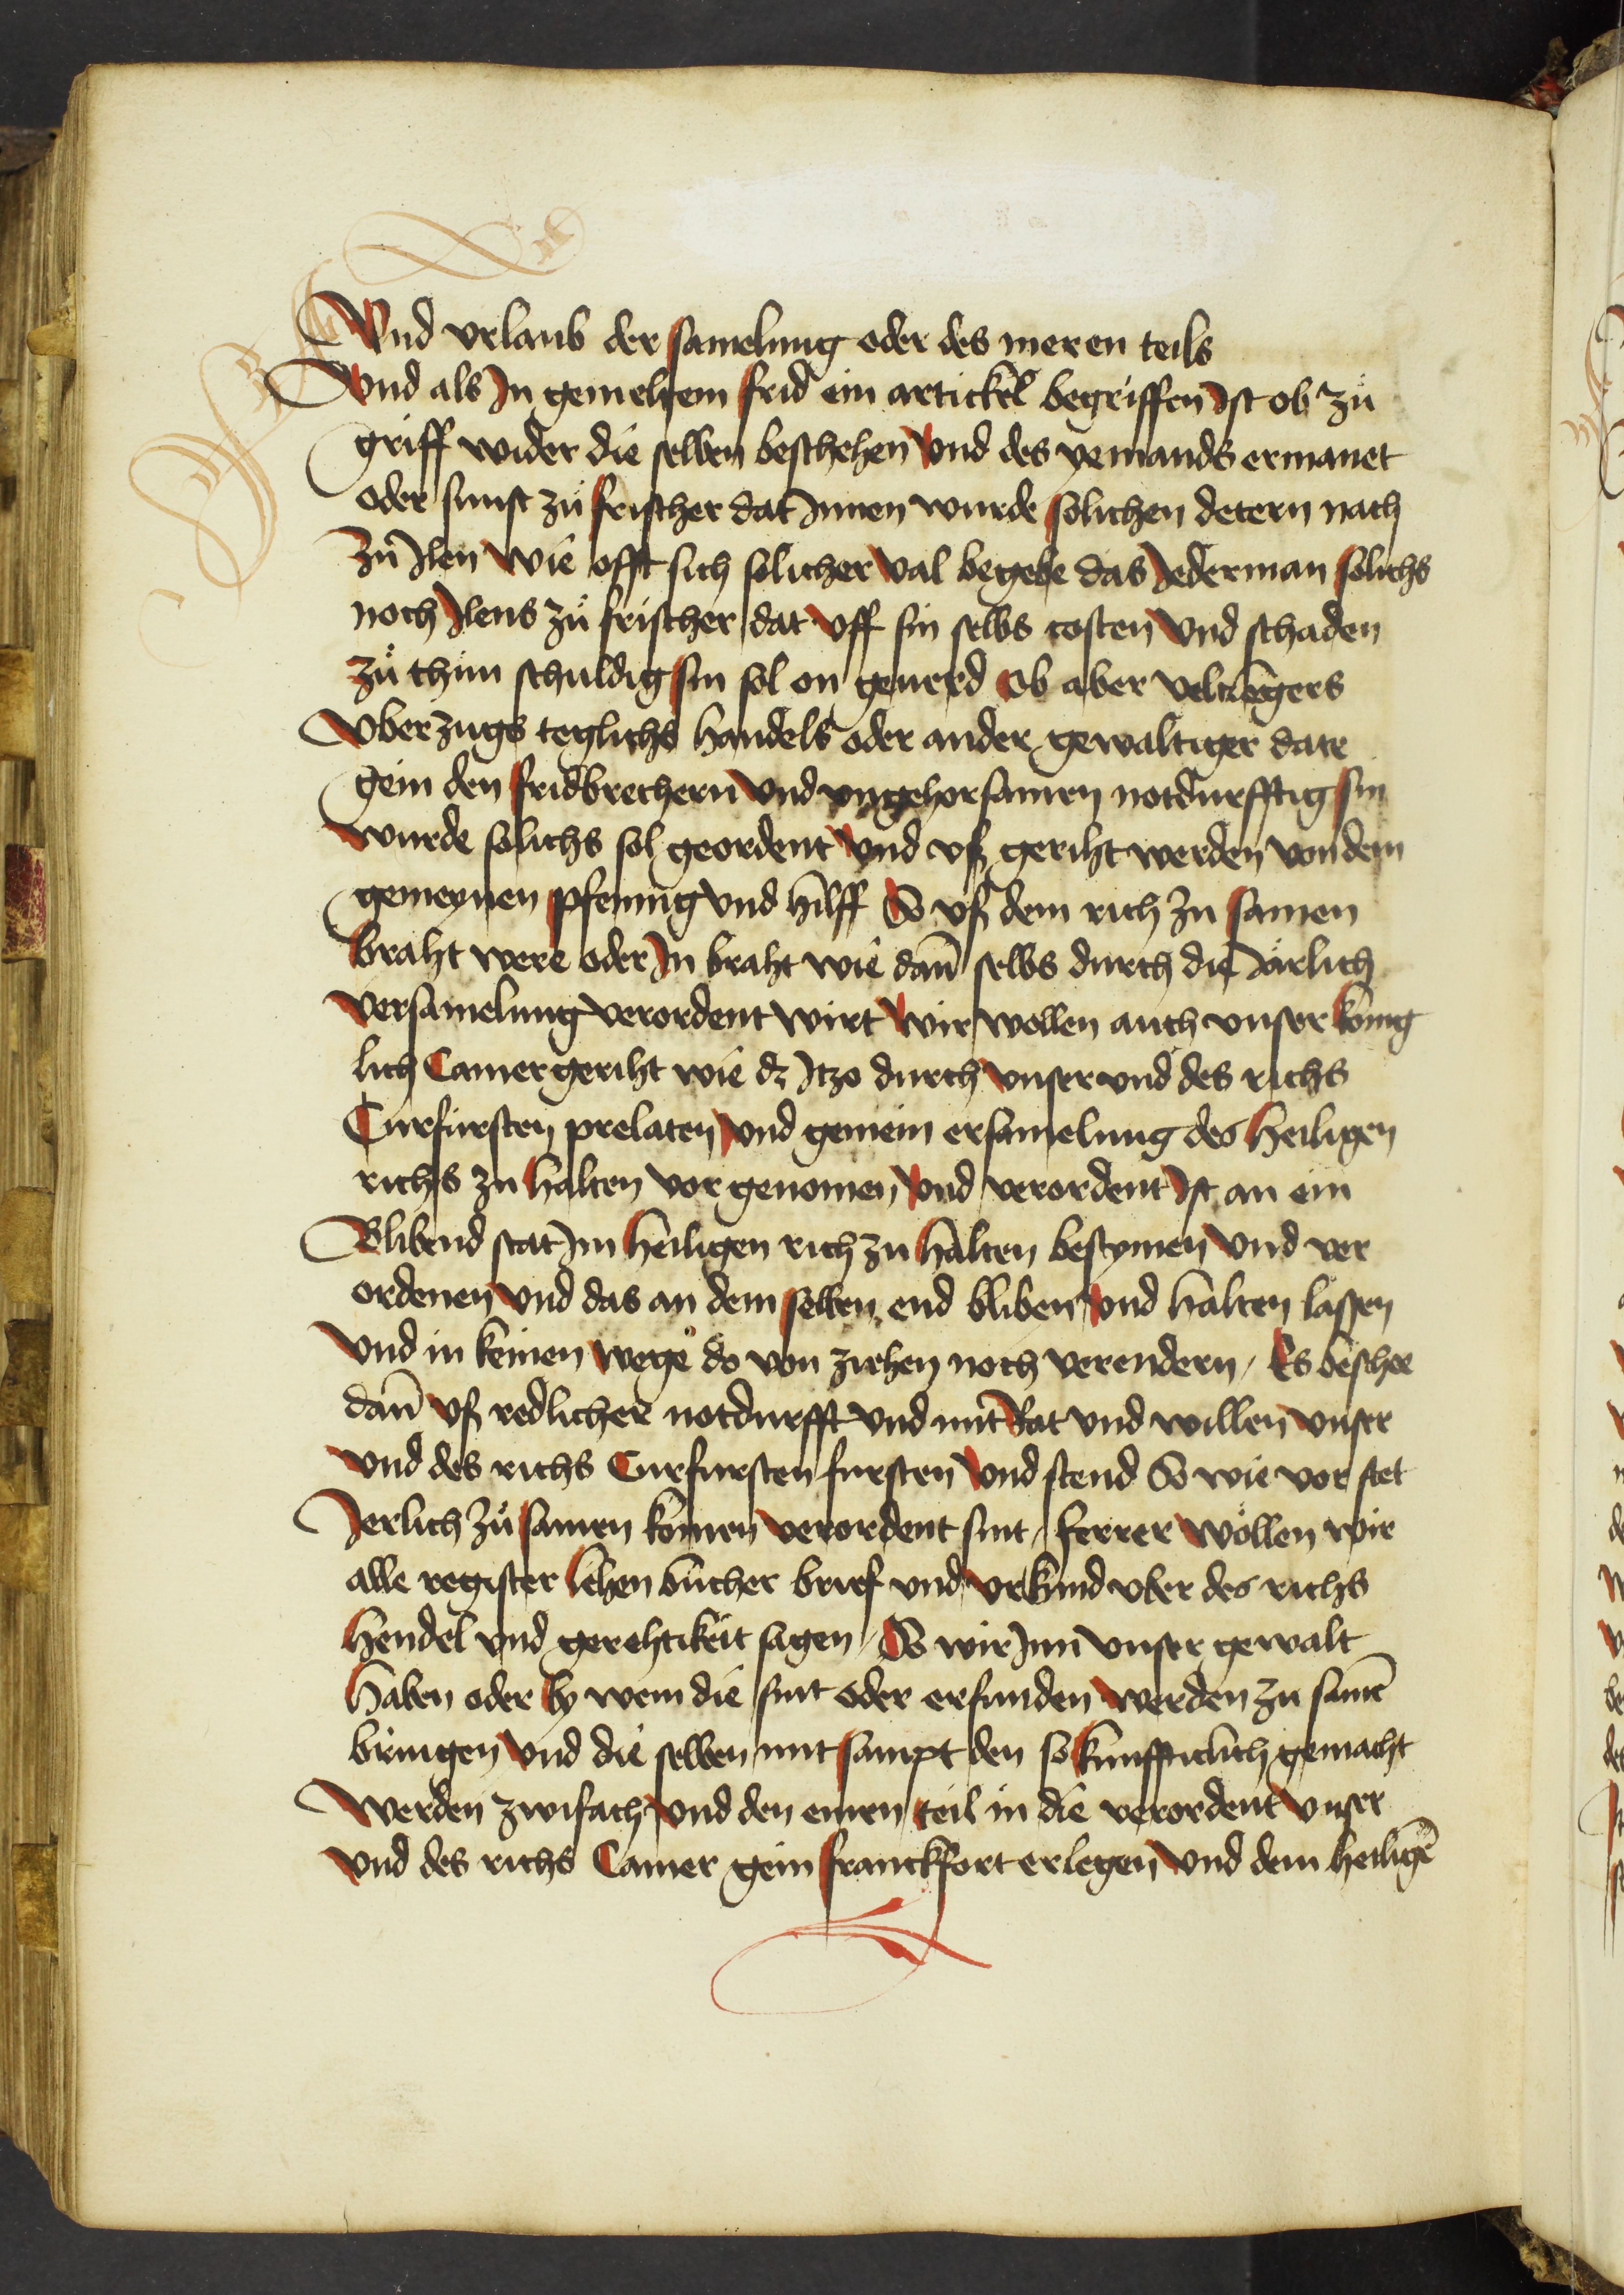 Vnd vrlaub der samelung oder des meren teils
Vnd als In gemeltem frid ein artickel begriffen Ist ob zů
griff wider die selben beschehen Vnd des yemands ermanet
oder sunst zů frischer dat Innen wurde solichen detern nach
zů Ilen Wie offt sich solicher Val begebe das Jederman solichs
noch Ilens zů frischer dat Vff sin selbs costen Vnd schaden
zů thůn schuldig sin sol on geuerd Ob aber veltlegers
Vberzugs teglichs handels oder ander gewaltiger date
gein den fridbrechern Vnd vngehorsamen notdurfftig sin
wurde solichs sol geordent Vnd vß geriht werden von dem
gemeynen pfennig Vnd hilff So vß dem rich zu samen
braht were oder In braht wie dan̄ selbs durch die Järlich
Versamelung verordent wirt Wir wollen auch vnser konig
lich Camergeriht wie dz Itzo durch Vnser vnd des richs
Curfursten prelaten Vnd gemein ersamelung des Heiligen
richs zu halten vor genomen Vnd verordent Ist an ein
Blibend stat Im heiligen rich zu halten bestymen Vnd ver
ordenen Vnd das an dem selben end bliben Vnd halten lassen
Vnd in keinen wege do von ziehen noch verendern / Es beschee
dan̄ vß redlicher notdurfft Vnd mit Rat vnd willen vnser
vnd des richs Curfursten fursten Vnd stend So wie vor stet
Jerlich zů samen komen verordent sint / ferrer wöllen wir
alle register lehen bůcher brief vnd vrkund vber des richs
hendel vnd gerehtikeit sagen / So wir Inn vnser gewalt
haben oder by wem die sint oder erfunden werden zu samē
bringen Vnd die selben mit sampt den so kunffticlich gemacht
Werden zwifach Vnd den einen teil in die verordent Vnser
vnd des richs Camer gein franckfort erlegen Vnd dem heiligē